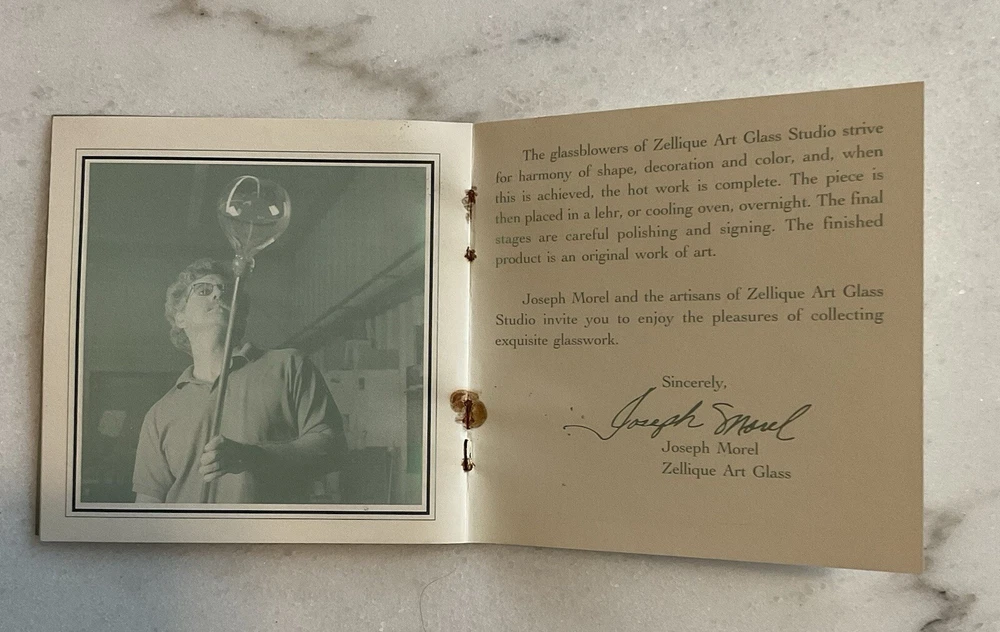 The glassblowers of Zellique Art Glass Studio strive
for harmony of shape, decoration and color, and, when
this is achieved, the hot work is complete. The piece is
then placed in a lehr, or cooling oven, overnight. The final
stages are careful polishing and signing. The finished
product is an original work of art.
Joseph Morel and the artisans of Zellique Art Glass
Studio invite you to enjoy the pleasures of collecting
exquisite glasswork.
Sincerely,
Joseph Morel
Joseph Morel
Zellique Art Glass